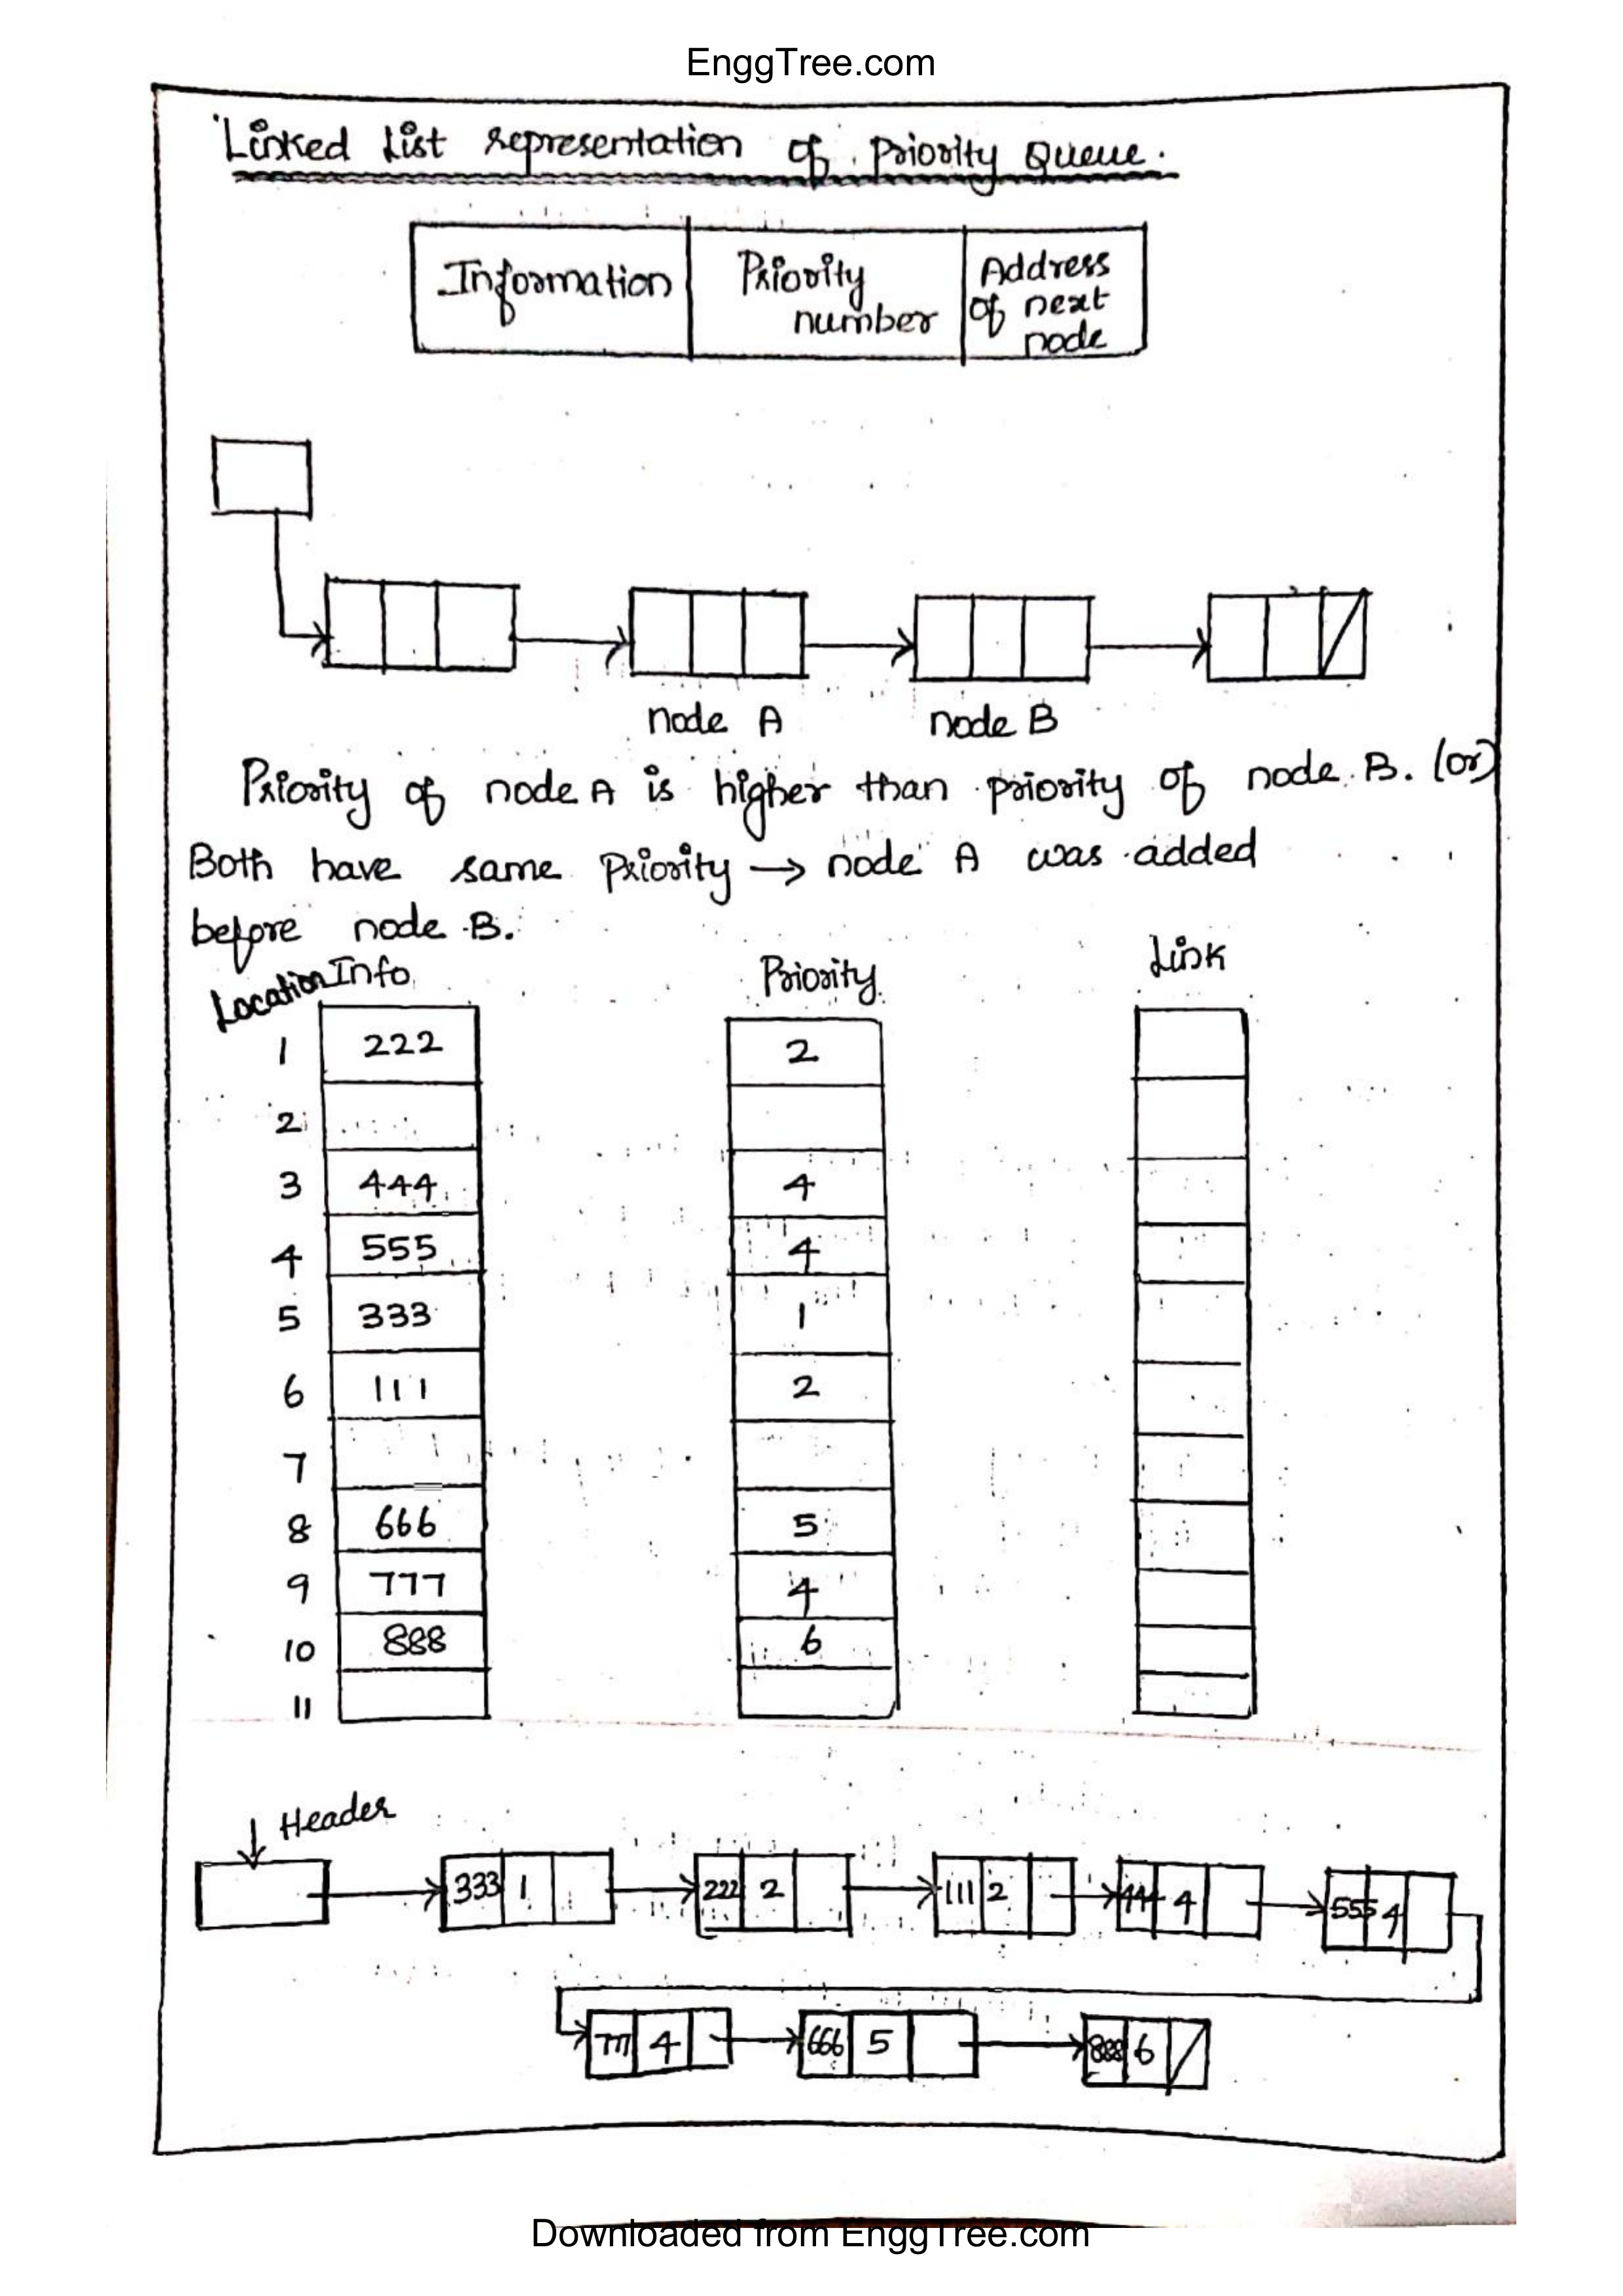 EnggTree.com
Linked List representation of Priority Queue.
Information Priority number Address of next node
node A node B
Priority of node A is higher than priority of node B. (or)
Both have same Priority → node A was added
before node B.
Location Info Priority Link
1 222 2
2
3 444 4
4 555 4
5 333 1
6 111 2
7
8 666 5
9 777 4
10 888 6
11
Header
333 1 222 2 111 2 444 4 555 4
777 4 666 5 888 6
Downloaded from EnggTree.com